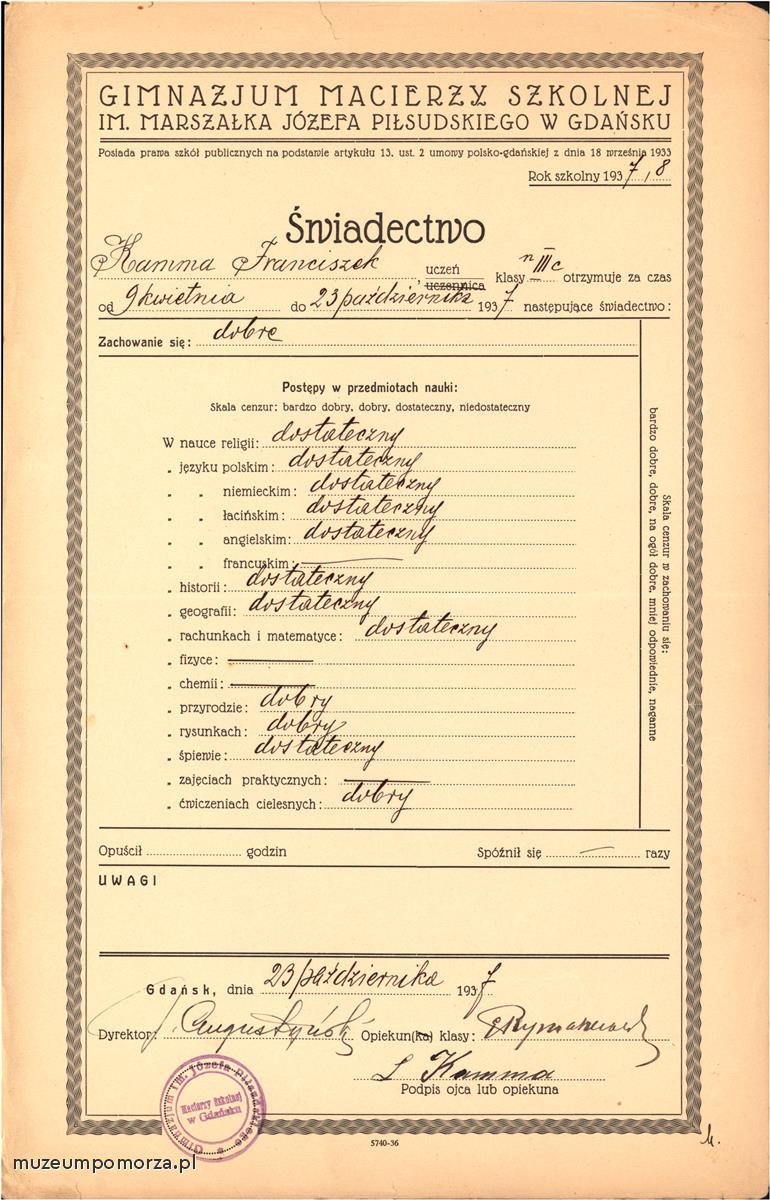 GIMNAZJUM MACIERZY SZKOLNEJ
IM. MARSZAŁKA JÓZEFA PIŁSUDSKIEGO W GDAŃSKU
Posiada prawa szkół publicznych na podstawie artykułu 13. ust. 2 umowy polsko-gdańskiej z dnia 18 września 1933
Rok szkolny 1937/8
Świadectwo
Kamma Franciszek, uczeń uczennica klasy III c otrzymuje za czas
od 9 kwietnia do 23 października 1937 następujące świadectwo:
Zachowanie się: dobre
Postępy w przedmiotach nauki:
Skala cenzur: bardzo dobry, dobry, dostateczny, niedostateczny
W nauce religii: dostateczny
„ języku polskim: dostateczny
„ „ niemieckim: dostateczny
„ „ łacińskim: dostateczny
„ „ angielskim: dostateczny
„ „ francuskim: —
„ historii: dostateczny
„ geografii: dostateczny
„ rachunkach i matematyce: dostateczny
„ fizyce: —
„ chemii: —
„ przyrodzie: dobry
„ rysunkach: dobry
„ śpiewie: dostateczny
„ zajęciach praktycznych: —
„ ćwiczeniach cielesnych: dobry
Skala cenzur w zachowaniu się:
bardzo dobre, dobre, na ogół dobre, mniej odpowiednie, naganne
Opuścił godzin Spóźnił się — razy
UWAGI
Gdańsk, dnia 23 października 1937
Dyrektor: Augustyński Opiekun(ka) klasy:
L Kamma
Podpis ojca lub opiekuna
Gimnazjum im. Józefa Piłsudskiego
Macierzy Szkolnej
w Gdańsku
5740-36
muzeumpomorza.pl